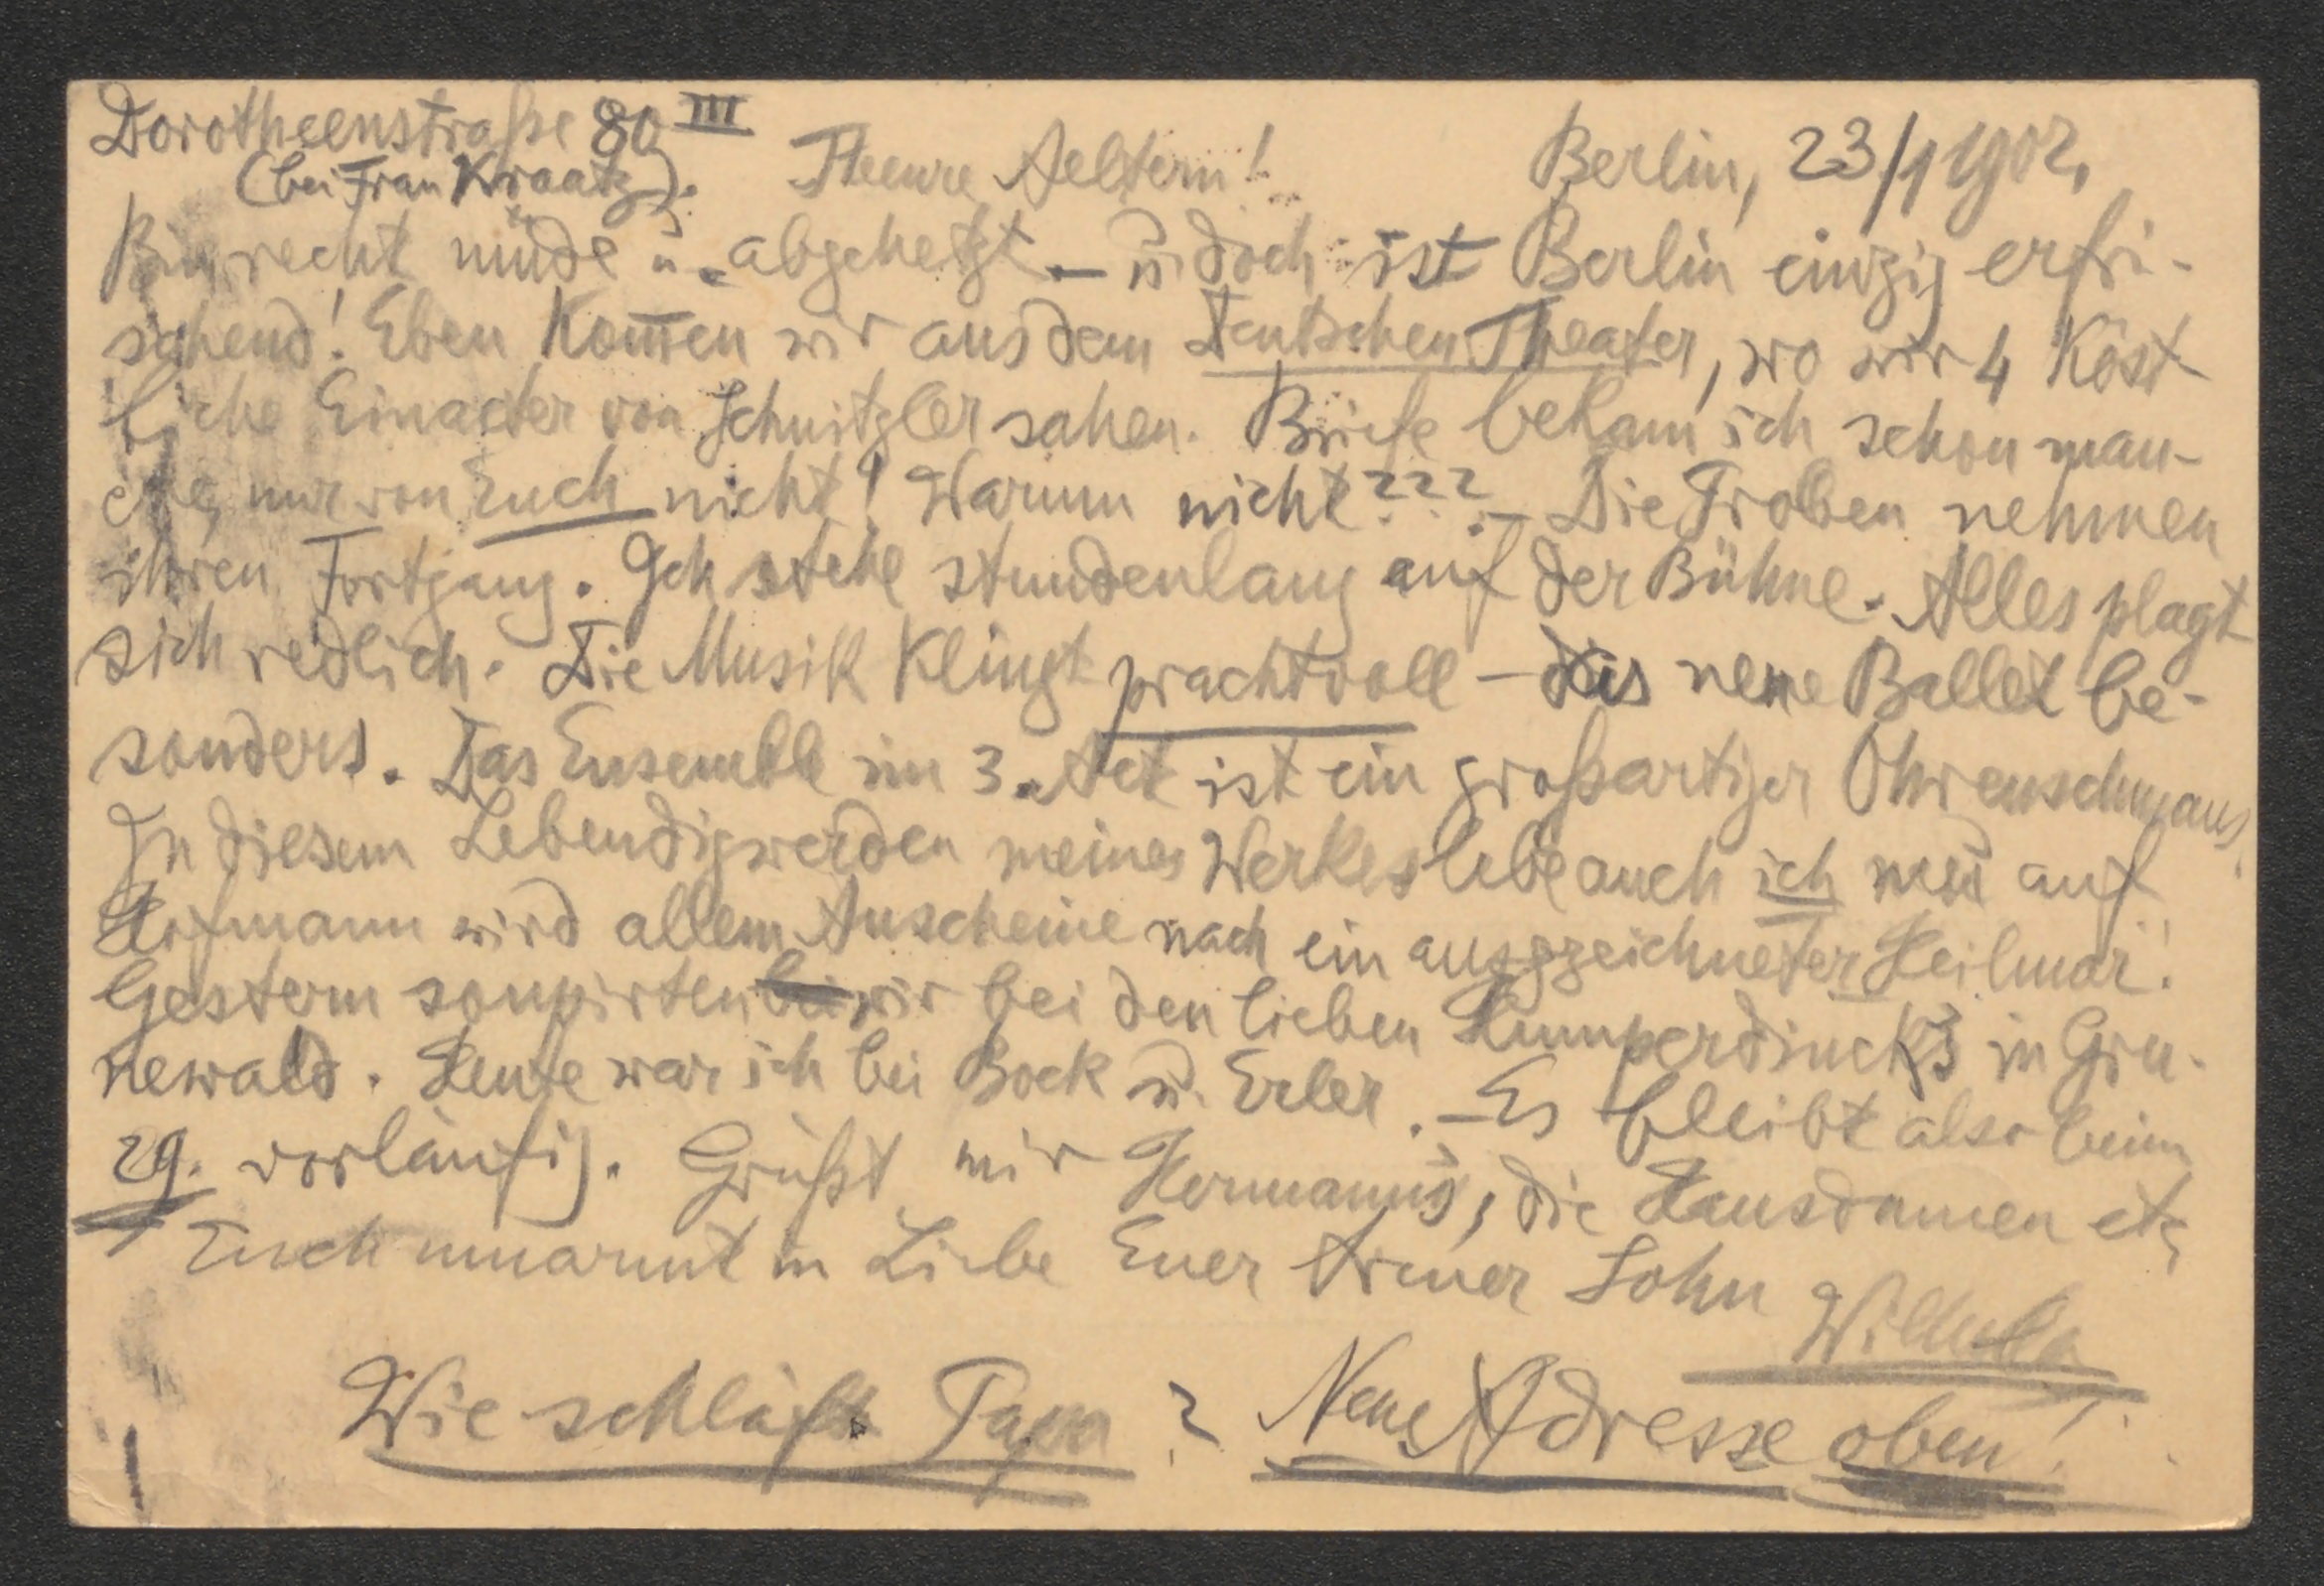 Dorotheenstraße 80 III
(bei Frau Kraatz).
Theure Aeltern!
Berlin, 23/1 1902.
Bin recht müde u. abgehetzt – u. doch ist Berlin einzig erfri-
schend! Eben kom̅en wir aus dem Deutschen Theater, wo wir 4 köst
liche Einacter von Schnitzler sahen. Briefe bekam ich schon man-
che, nur von Euch nicht! Warum nicht??? – Die Proben nehmen
ihren Fortgang. Ich stehe stundenlang auf der Bühne. Alles plagt
sich redlich. Die Musik klingt prachtvoll – das neue Ballet be-
sonders. Das Ensemble im 3. Act ist ein großartiger Ohrenschmaus,
In diesem Lebendigwerden meines Werkes lebe auch ich neu auf
Hofmann wird allem Anscheine nach ein ausgezeichneter Heilmar!
Gestern soupirten wir bei den lieben Humperdinck's in Gru-
newald. Heute war ich bei Bock u. Erler. – Es bleibt also beim
29. vorläufig. Grüßt mir Hermann's, die Hausdamen etc
Euch umarmt in Liebe Euer treuer Sohn
Wilhelm
Wie schläft Papa? Neue Adresse oben!